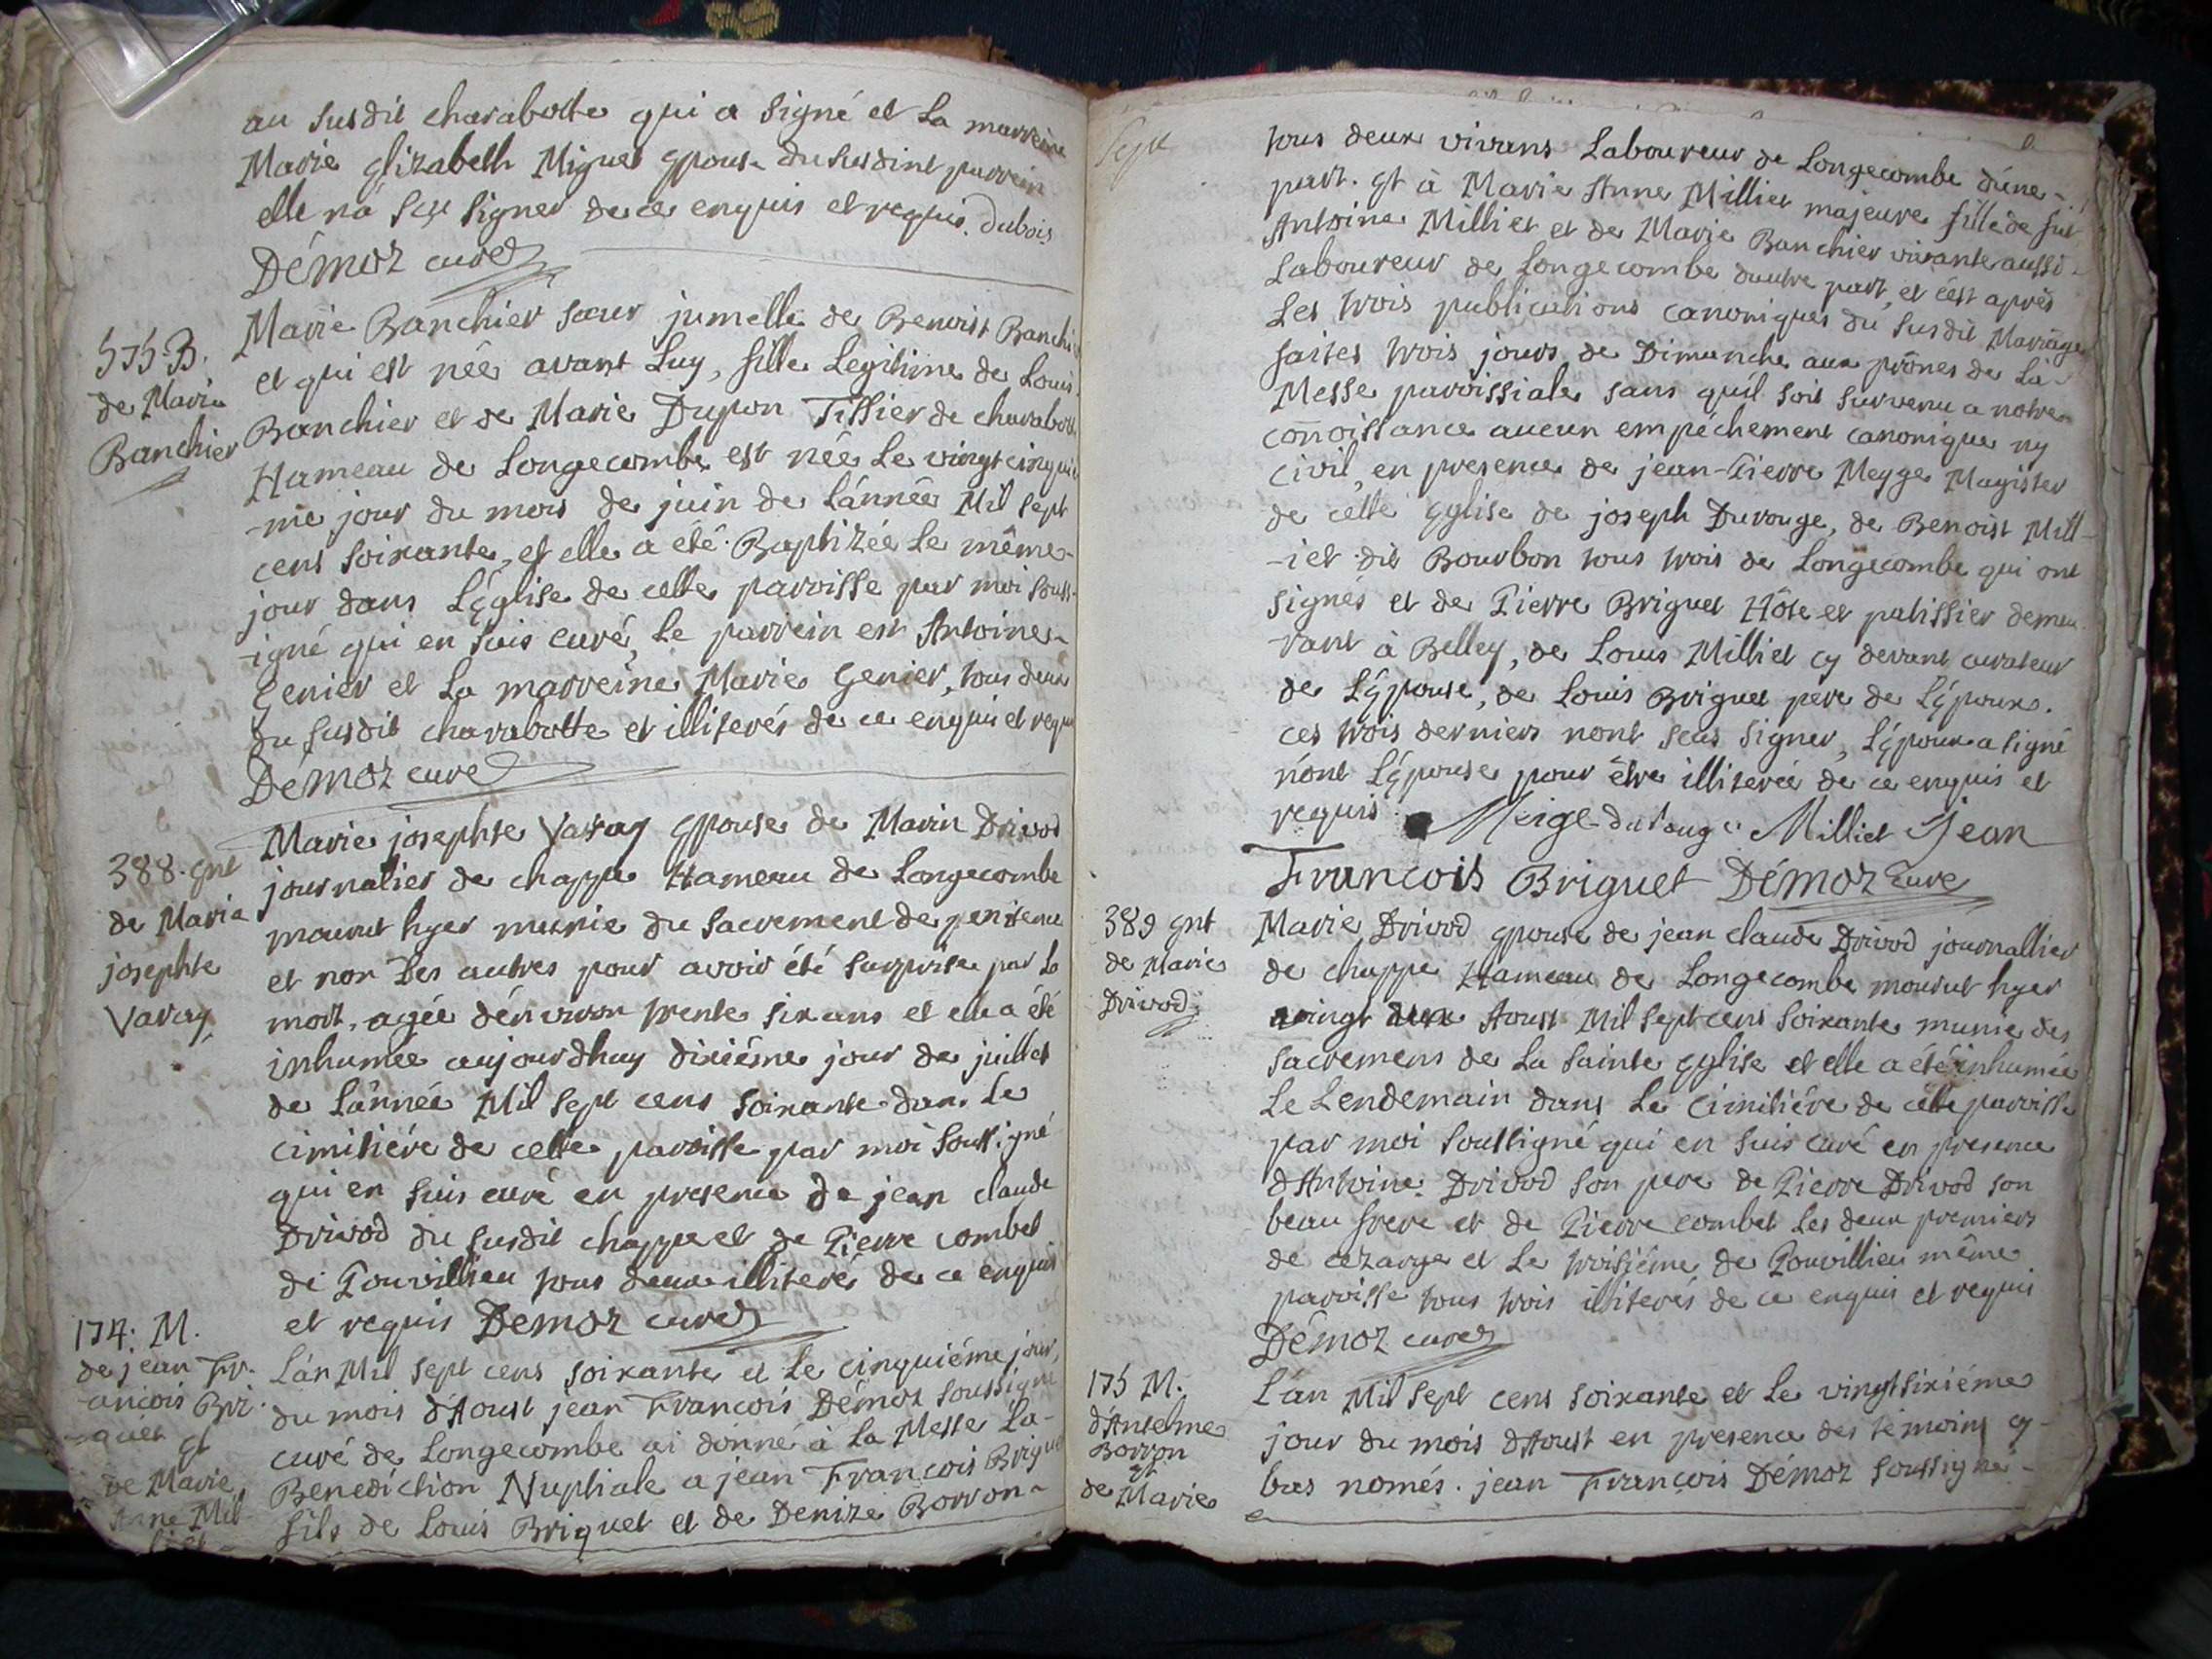 au susdit charabotte qui a signé et la marreine
Marie Elizabeth Miguet Epouse du susdint parrein
elle na sçu signer de ce enquis et requis. dubois
Démoz curé
575 B.
de Marie
Banchier
Marie Banchier sœur jumelle de Benoist Banchier
et qui est née avant luy, fille Legitime de Louis
Banchier et de Marie Dupon Tissier de charabotte
Hameau de Longecombe est née Le vingtcinquié
-me jour du mois de juin de L'année Mil sept
cens soixante, et elle a été Baptizée Le même-
jour dans L'Eglise de cette paroisse par moi souss-
-igné qui en suis curé, Le parrein est Antoine-
Genier et La marreine Marie Genier, tous deux
du susdit charabotte et illiterés de ce enquis et requis
Démoz curé
388. Ent
de Marie
josephte
Varay
Marie josephte Varay Epouse de Marin Drivod
journalier de chappe Hameau de Longecombe
mourut hyer munie du sacrement de penitence
et non des autres pour avoir été surprise par la
mort, agée d'environ trente six ans et elle a été
inhumée aujourdhuy dixiéme jour de juillet
de L'année Mil sept cens soixante dans Le
cimitiére de cette paroisse par moi soussigné
qui en suis curé en presence de jean claude
Drivod du susdit chappe et de Pierre combet
de Pouvillieu tous deux illiterés de ce enquis
et requis Démoz curé
174. M.
de jean Fr-
ançois Bri-
-quet
Et
de Marie
Anne Mil-
liet-
L'an Mil sept cens soixante et Le cinquiéme jour,
du mois d'Aoust jean François Démoz soussigné
curé de Longecombe ai donné à La Messe La-
Benediction Nuptiale a jean François Briquet
fils de Louis Briquet et de Denize Borron-
Sept
tous deux vivans Laboureur de Longecombe d'une-
part. Et à Marie Anne Milliet majeure fille de fut
Antoine Milliet et de Marie Banchier vivante aussi-
Laboureur de Longecombe dautre part, et c'est aprés
Les trois publications canoniques du susdit Mariage
faites trois jours de Dimanche aux prônes de La-
Messe paroissiale sans quil soit survenu a notre-
connoissance aucun empéchement canonique ny
civil, en presence de jean-Pierre Meyge Magister
de cette Eglise de joseph Durouge, de Benoist Mill-
-iet dit Bourbon tous trois de Longecombe qui ont
signés et de Pierre Briguet Hôte et patissier demeu-
rant à Belley, de Louis Milliet cy devant curateur
de L'Epouse, de Louis Briguet pere de L'Epoux.
ces trois derniers nont sçus signer, L'Epoux a signé
nont L'Epouse pour être illiterée de ce enquis et
requis. Meige duRouge Milliet Jean
François Briguet Démoz curé
389 Ent
de Marie
Drivod
Marie Drivod Epouse de jean claude Drivod journallier
de chappe Hameau de Longecombe mourut hyer
vingt deux Aoust Mil sept cens soixante munie des
sacremens de La sainte Eglise et elle a été inhumée
Le Lendemain dans Le cimitiére de cette paroisse
par moi soussigné qui en suis curé en presence
d'Antoine Drivod son pere de Pierre Drivod son
beau frere et de Pierre combet Les deux premiers
de cezarge et Le troisiéme de Pouvillieu même
paroisse tous trois illiterés de ce enquis et requis
Démoz curé
175 M.
d'Antelme
Borron
Et
de Marie
L'an Mil sept cens soixante et Le vingtsixiéme
jour du mois d'Aoust en presence des témoins cy-
bas només. jean François Démoz soussigné-